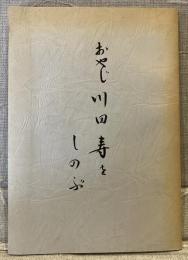 おやじ 川田寿を
しのぶ